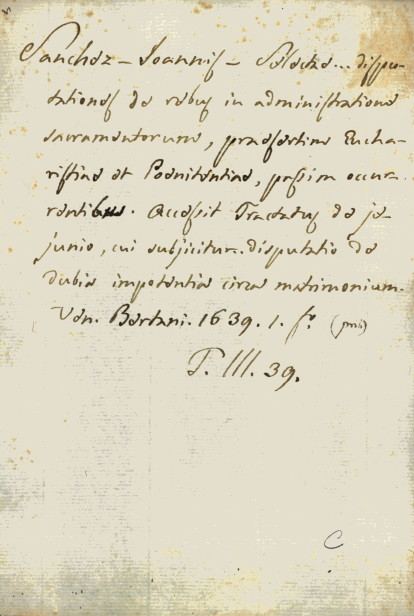 Sanchez - Joannis - Selectae... dispu-
tationes de rebus in administratione
sacramentorum, praesertim Eucha-
ristiae et Poenitentiae, passim occur-
rentibus. Accessit Tractatus de je-
junio, cui subjicitur disputatio de
dubia impotentia circa matrimonium.
Ven. Bertani. 1639. 1. fo.
T. III. 39.
C